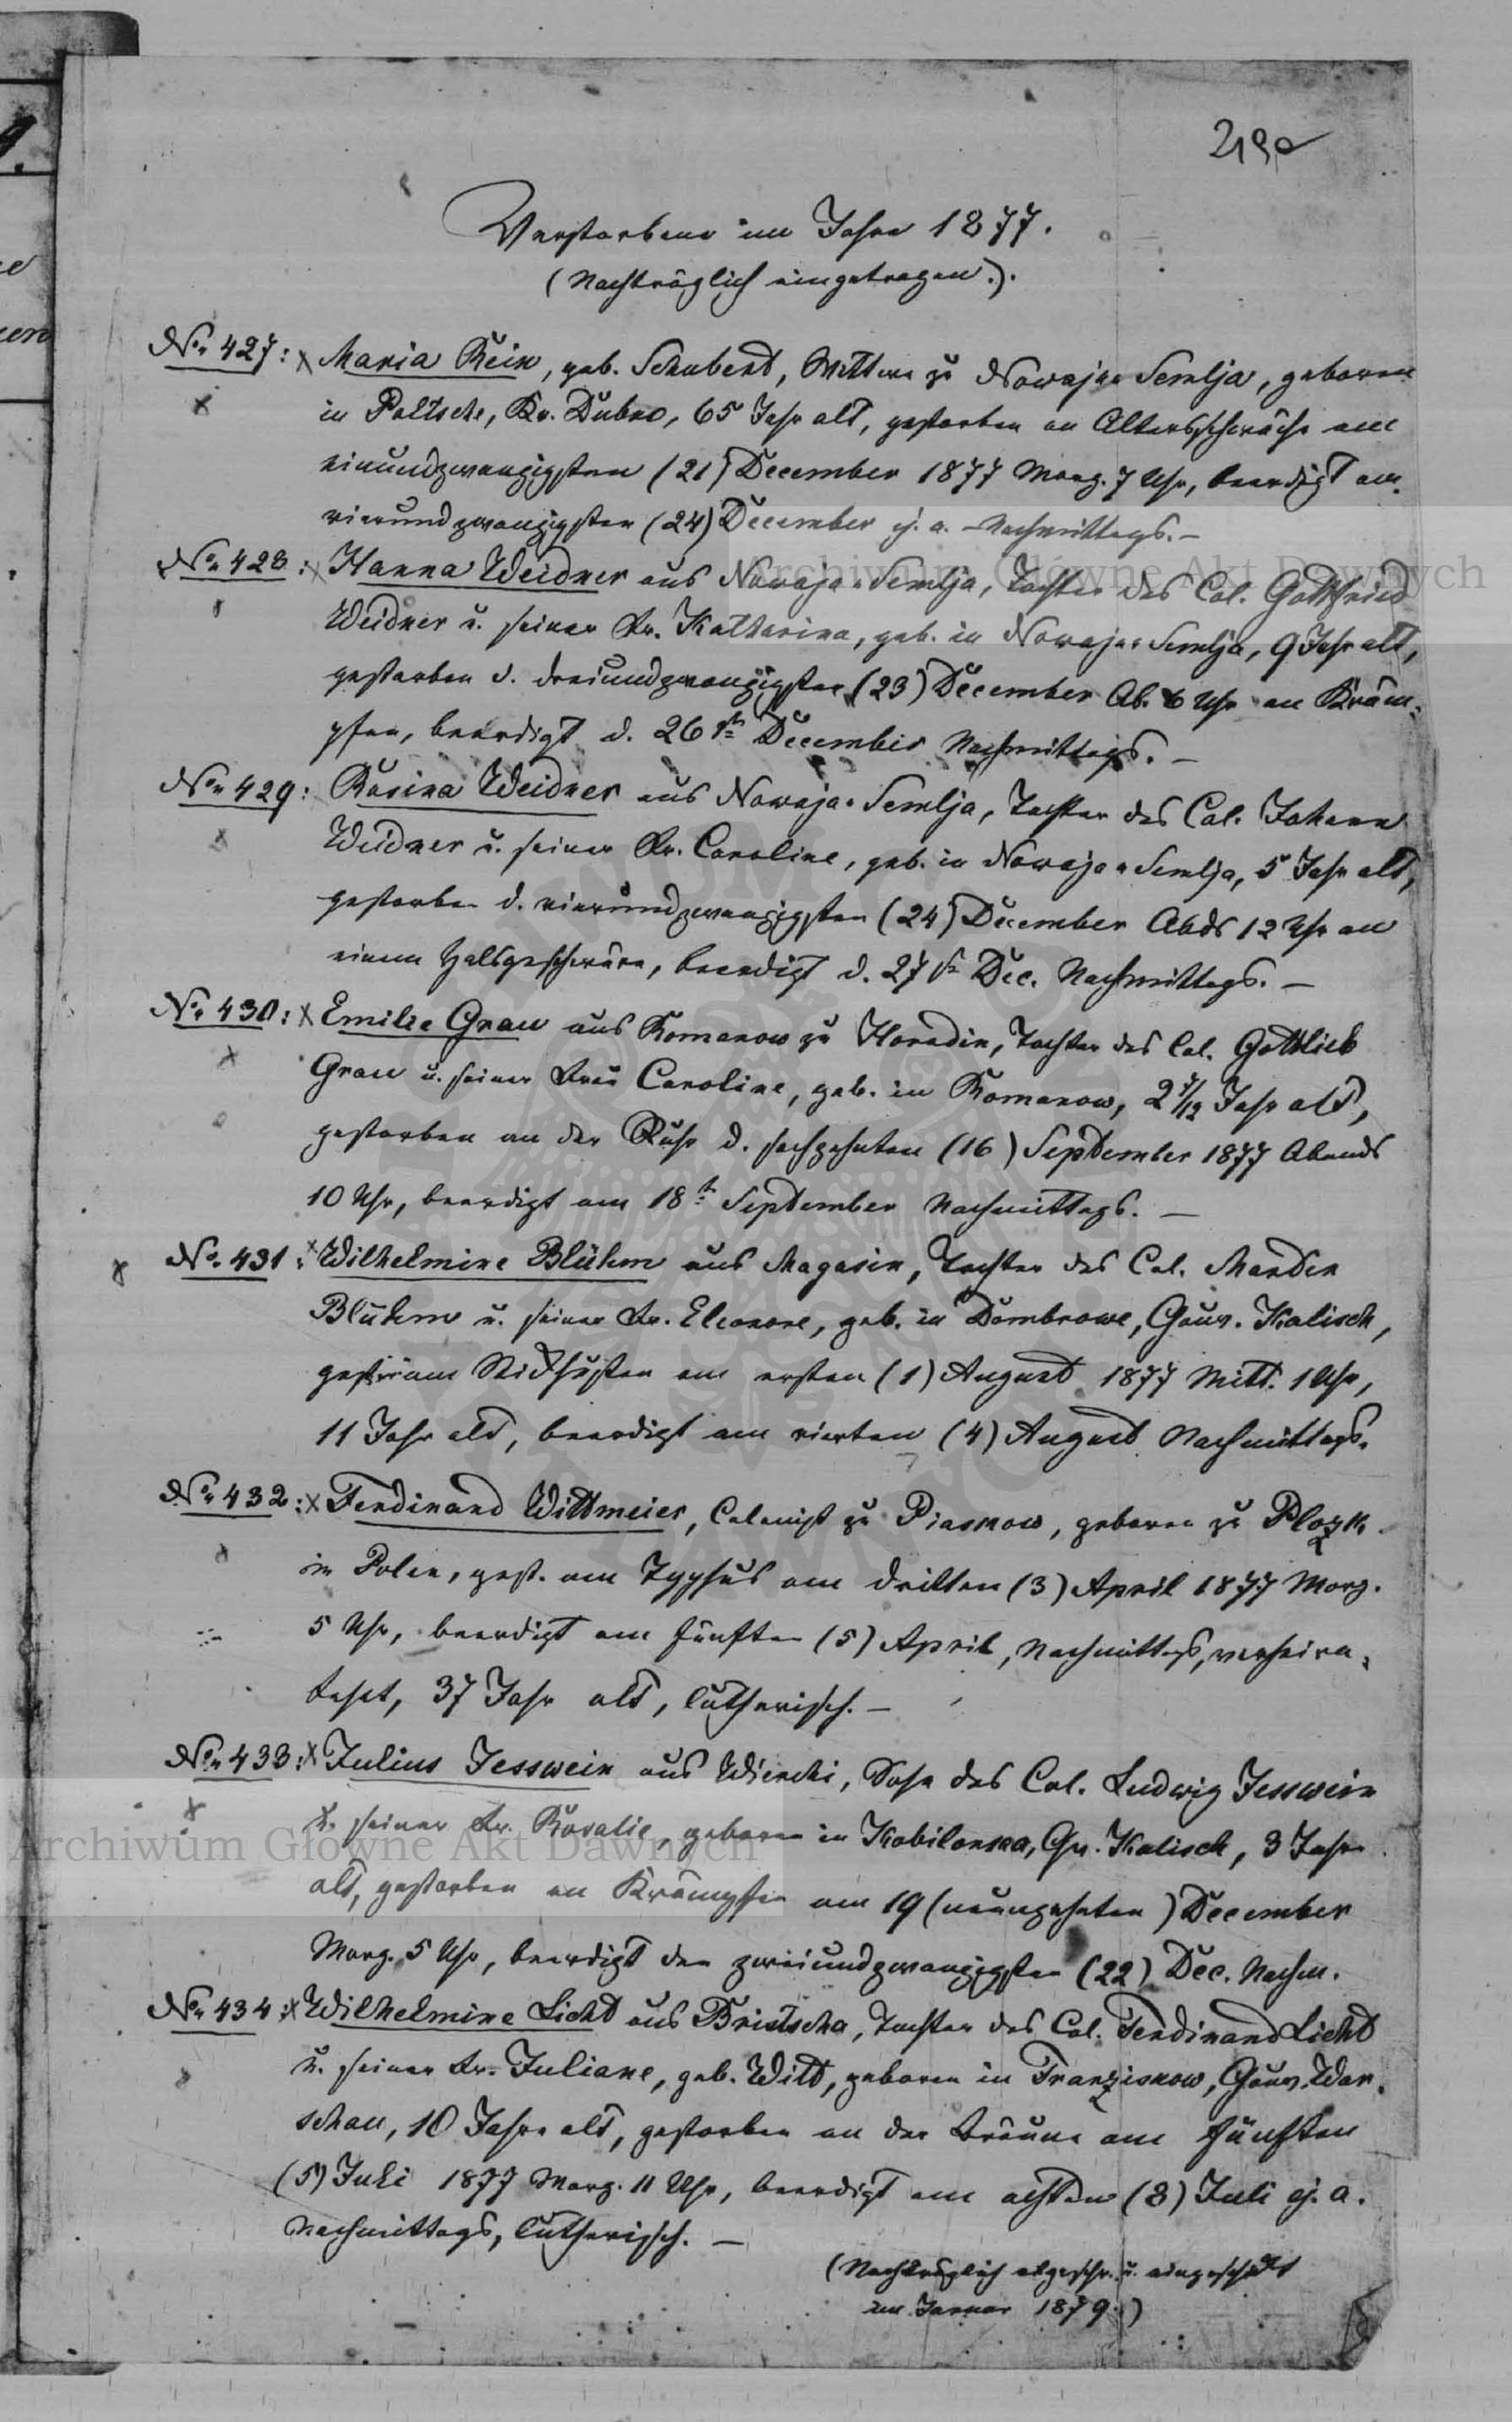 Verstorbene im Jahre 1877.
(Nachträglich eingetragen.).
No 427: Maria Rein, geb. Schubert, Wittwe zu Nowaja-Semlja, geboren
in Poltsche, Kr. Dubno, 65 Jahr alt, gestorben an Altersschwäche am
einundzwanzigsten (21) December 1877 Morg. 7 Uhr, beerdigt am
vierundzwanzigsten (24) December ej. a. Nachmittags. —
No 428: Hanna Weidner aus Nowaja-Semlja, Tochter des Col. Gottfried
Weidner u. seiner Fr. Katharina, geb. in Nowaja-Semlja, 9 Jahr alt,
gestorben d. dreiundzwanzigsten (23) December Ab. 6 Uhr an Kräm-
pfen, beerdigt d. 26st December Nachmittags. —
No 429: Rosina Weidner aus Nowaja-Semlja, Tochter des Col. Johann
Weidner u. seiner Fr. Caroline, geb. in Nowaja-Semlja, 5 Jahr alt,
gestorben d. vierundzwanzigsten (24) December Abds 12 Uhr an
einem Halsgeschwüre, beerdigt d. 27st Dec. Nachmittags. —
No 430: Emilie Grau aus Romanow zu Horodin, Tochter des Col. Gottlieb
Grau u. seiner Frau Caroline, geb. in Romanow, 2 7/12 Jahr alt,
gestorben an der Ruhr d. sechzehnten (16) September 1877 Abends
10 Uhr, beerdigt am 18t September Nachmittags. —
No. 431: Wilhelmine Blühm aus Magasin, Tochter des Col. Martin
Blühm u. seiner Fr. Eleonore, geb. in Dombrowe, Gouv. Kalisch,
am Stickhusten am ersten (1) August 1877 Mitt. 1 Uhr,
11 Jahr alt, beerdigt am vierten (4) August Nachmittags.
No 432: Ferdinand Wittmeier, Colonist zu Piasnow, geboren zu Plozk
in Polen, gest. am Typhus am dritten (3) April 1877 Morg.
5 Uhr, beerdigt am fünften (5) April, Nachmittags, verheira-
tehet, 37 Jahr alt, lutherisch. —
No 433: Julius Jesswein aus Wierchi, Sohn des Col. Ludwig Jesswein
u. seiner Fr. Rosalie, geboren in Kobilanka, Gv. Kalisch, 3 Jahr
alt, gestorben an Krämpfen am 19 (neunzehnten) December
Morg. 5 Uhr, beerdigt den zweiundzwanzigsten (22) Dec. Nachm.
No 434: Wilhelmine Licht aus Bristscha, Tochter des Col. Ferdinand Licht
u. seiner Fr. Juliane, geb. Witt, geboren in Franziskow, Gouv. War-
schau, 10 Jahre alt, gestorben an der Bräune am fünften
(5) Juli 1877 Morg. 11 Uhr, beerdigt am achten (8) Juli ej. a.
Nachmittags, lutherisch. —
(Nachträglich abgeschr. u. eingeschickt
im Januar 1879.)
Archiwum Główne Akt Dawnych
Archiwum Główne Akt Dawnych